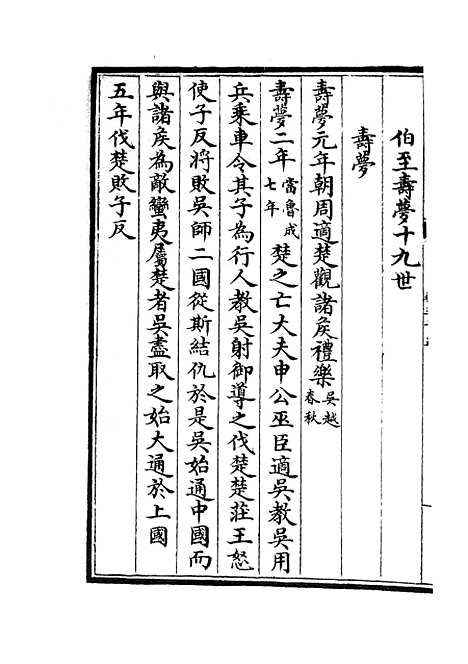 伯至壽夢十九世
壽夢
壽夢元年朝周適楚觀諸侯禮樂吳越春秋
壽夢二年當魯成七年楚之亡大夫申公巫臣適吳教吳用
兵乘車令其子為行人教吳射御導之伐楚楚莊王怒
使子反將敗吳師二國從斯結仇於是吳始通中國而
與諸侯為敵蠻夷屬楚者吳盡取之始大通於上國
五年伐楚敗子反